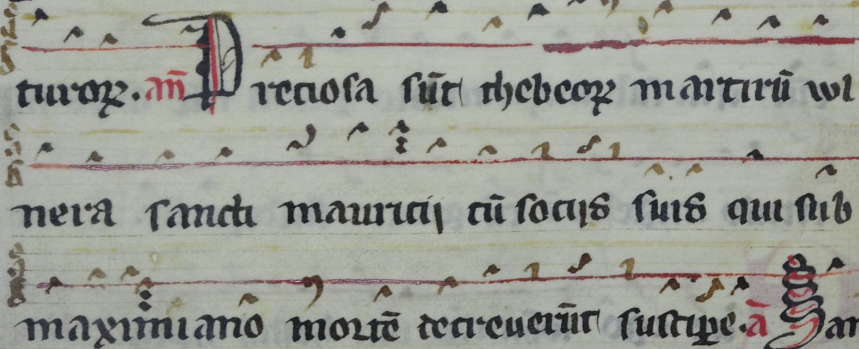 turoꝝ. an̄ Preciosa sūt thebeoꝝ martirū wl
nera sancti mauricij cū socijs suis qui sub
maximiano mortē decreuerūt suscipe. ā San